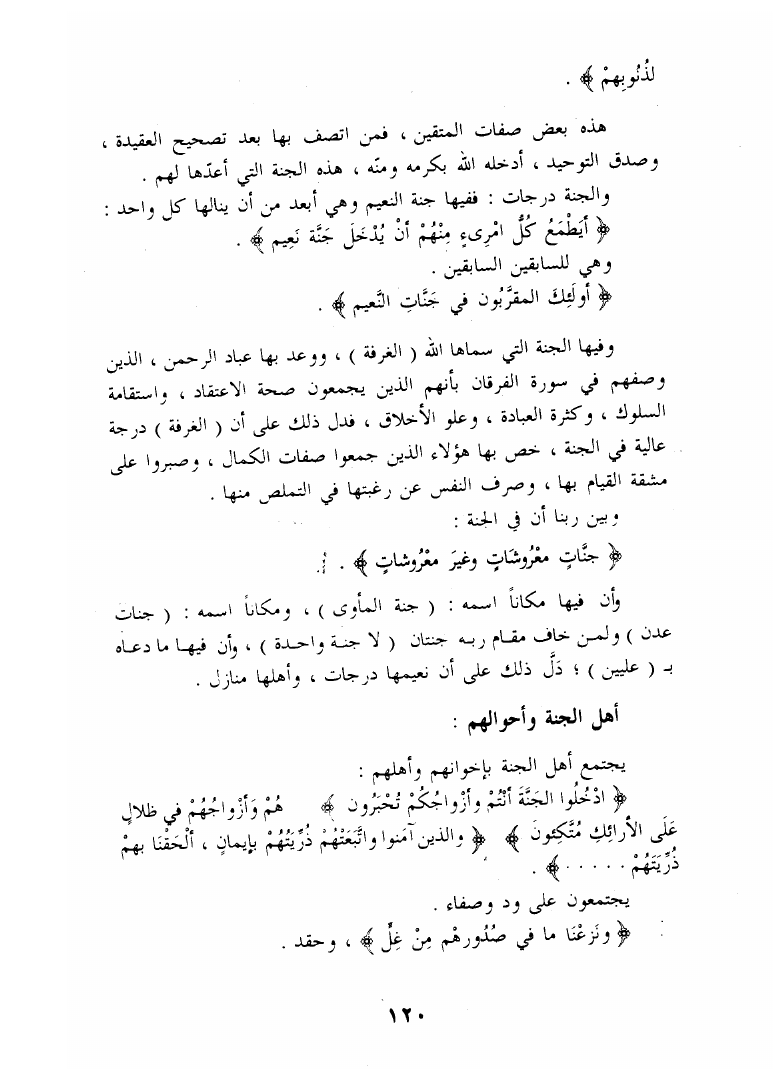 لذُنُوبِهمْ ﴾ .
هذه بعض صفات المتقين ، فمن اتصف بها بعد تصحيح العقيدة ،
وصدق التوحيد ، أدخله الله بكرمه ومنّه ، هذه الجنة التي أعدّها لهم .
والجنة درجات : ففيها جنة النعيم وهي أبعد من أن ينالها كل واحد :
﴿ أيَطْمَعُ كُلُّ امْرِىءٍ مِنْهُمْ أنْ يُدْخَلَ جَنَّة نَعِيم ﴾ .
وهي للسابقين السابقين .
﴿ أولَئِكَ المقرَّبُون في جَنَّاتِ النَّعيم ﴾ .
وفيها الجنة التي سماها الله ( الغرفة ) ، ووعد بها عباد الرحمن ، الذين
وصفهم في سورة الفرقان بأنهم الذين يجمعون صحة الاعتقاد ، واستقامة
السلوك ، وكثرة العبادة ، وعلو الأخلاق ، فدل ذلك على أن ( الغرفة ) درجة
عالية في الجنة ، خص بها هؤلاء الذين جمعوا صفات الكمال ، وصبروا على
مشقة القيام بها ، وصرف النفس عن رغبتها في التملص منها .
وبين ربنا أن في الجنة :
﴿ جنَّاتٍ معْرُوشَاتٍ وغيَر معْرُوشاتٍ ﴾ .
وأن فيها مكاناً اسمه : ( جنة المأوى ) ، ومكاناً اسمه : ( جنات
عدن ) ولمن خاف مقام ربه جنتان ( لا جنة واحدة ) ، وأن فيها ما دعاه
بـ ( عليين ) ؛ دَلَّ ذلك على أن نعيمها درجات ، وأهلها منازل .
أهل الجنة وأحوالهم :
يجتمع أهل الجنة بإخوانهم وأهلهم :
﴿ ادْخُلُوا الجَنَّةَ أنْتُمْ وأزْواجُكُمْ تُحْبَرُون ﴾ هُمْ وَأزْواجُهُمْ في ظلالٍ
عَلَى الأرائِكِ مُتَّكِئونَ ﴾ ﴿ والذين آمَنوا واتَّبَعَتْهُمْ ذُرِّيَتُهُمْ بإيمانٍ ، ألْحَقْنَا بهمْ
ذُرِّيَتَهُمْ ..... ﴾ .
يجتمعون على ود وصفاء .
﴿ ونَزعْنَا ما في صُدُورهْم مِنْ غِلٍّ ﴾ ، وحقد .
١٢٠